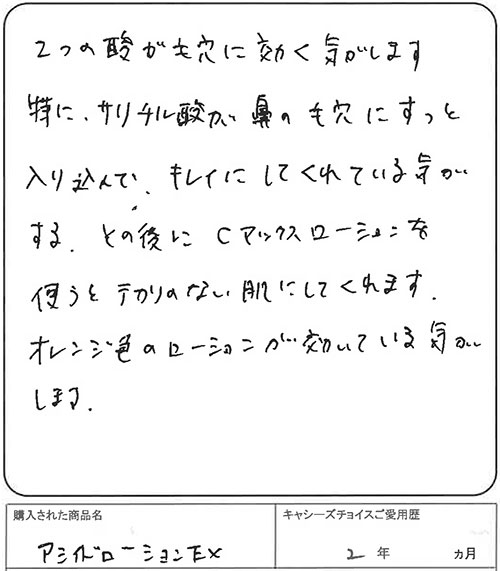 2つの酸が毛穴に効く気がします
特に、サリチル酸が鼻の毛穴にすっと
入り込んで、キレイにしてくれている気が
する。その後にCアックスローションを
使うとテカリのない肌にしてくれます。
オレンジ色のローションが効いている気が
します。
購入された商品名
キャシーズチョイスご愛用歴
アシイドローションEX
2年 ヵ月